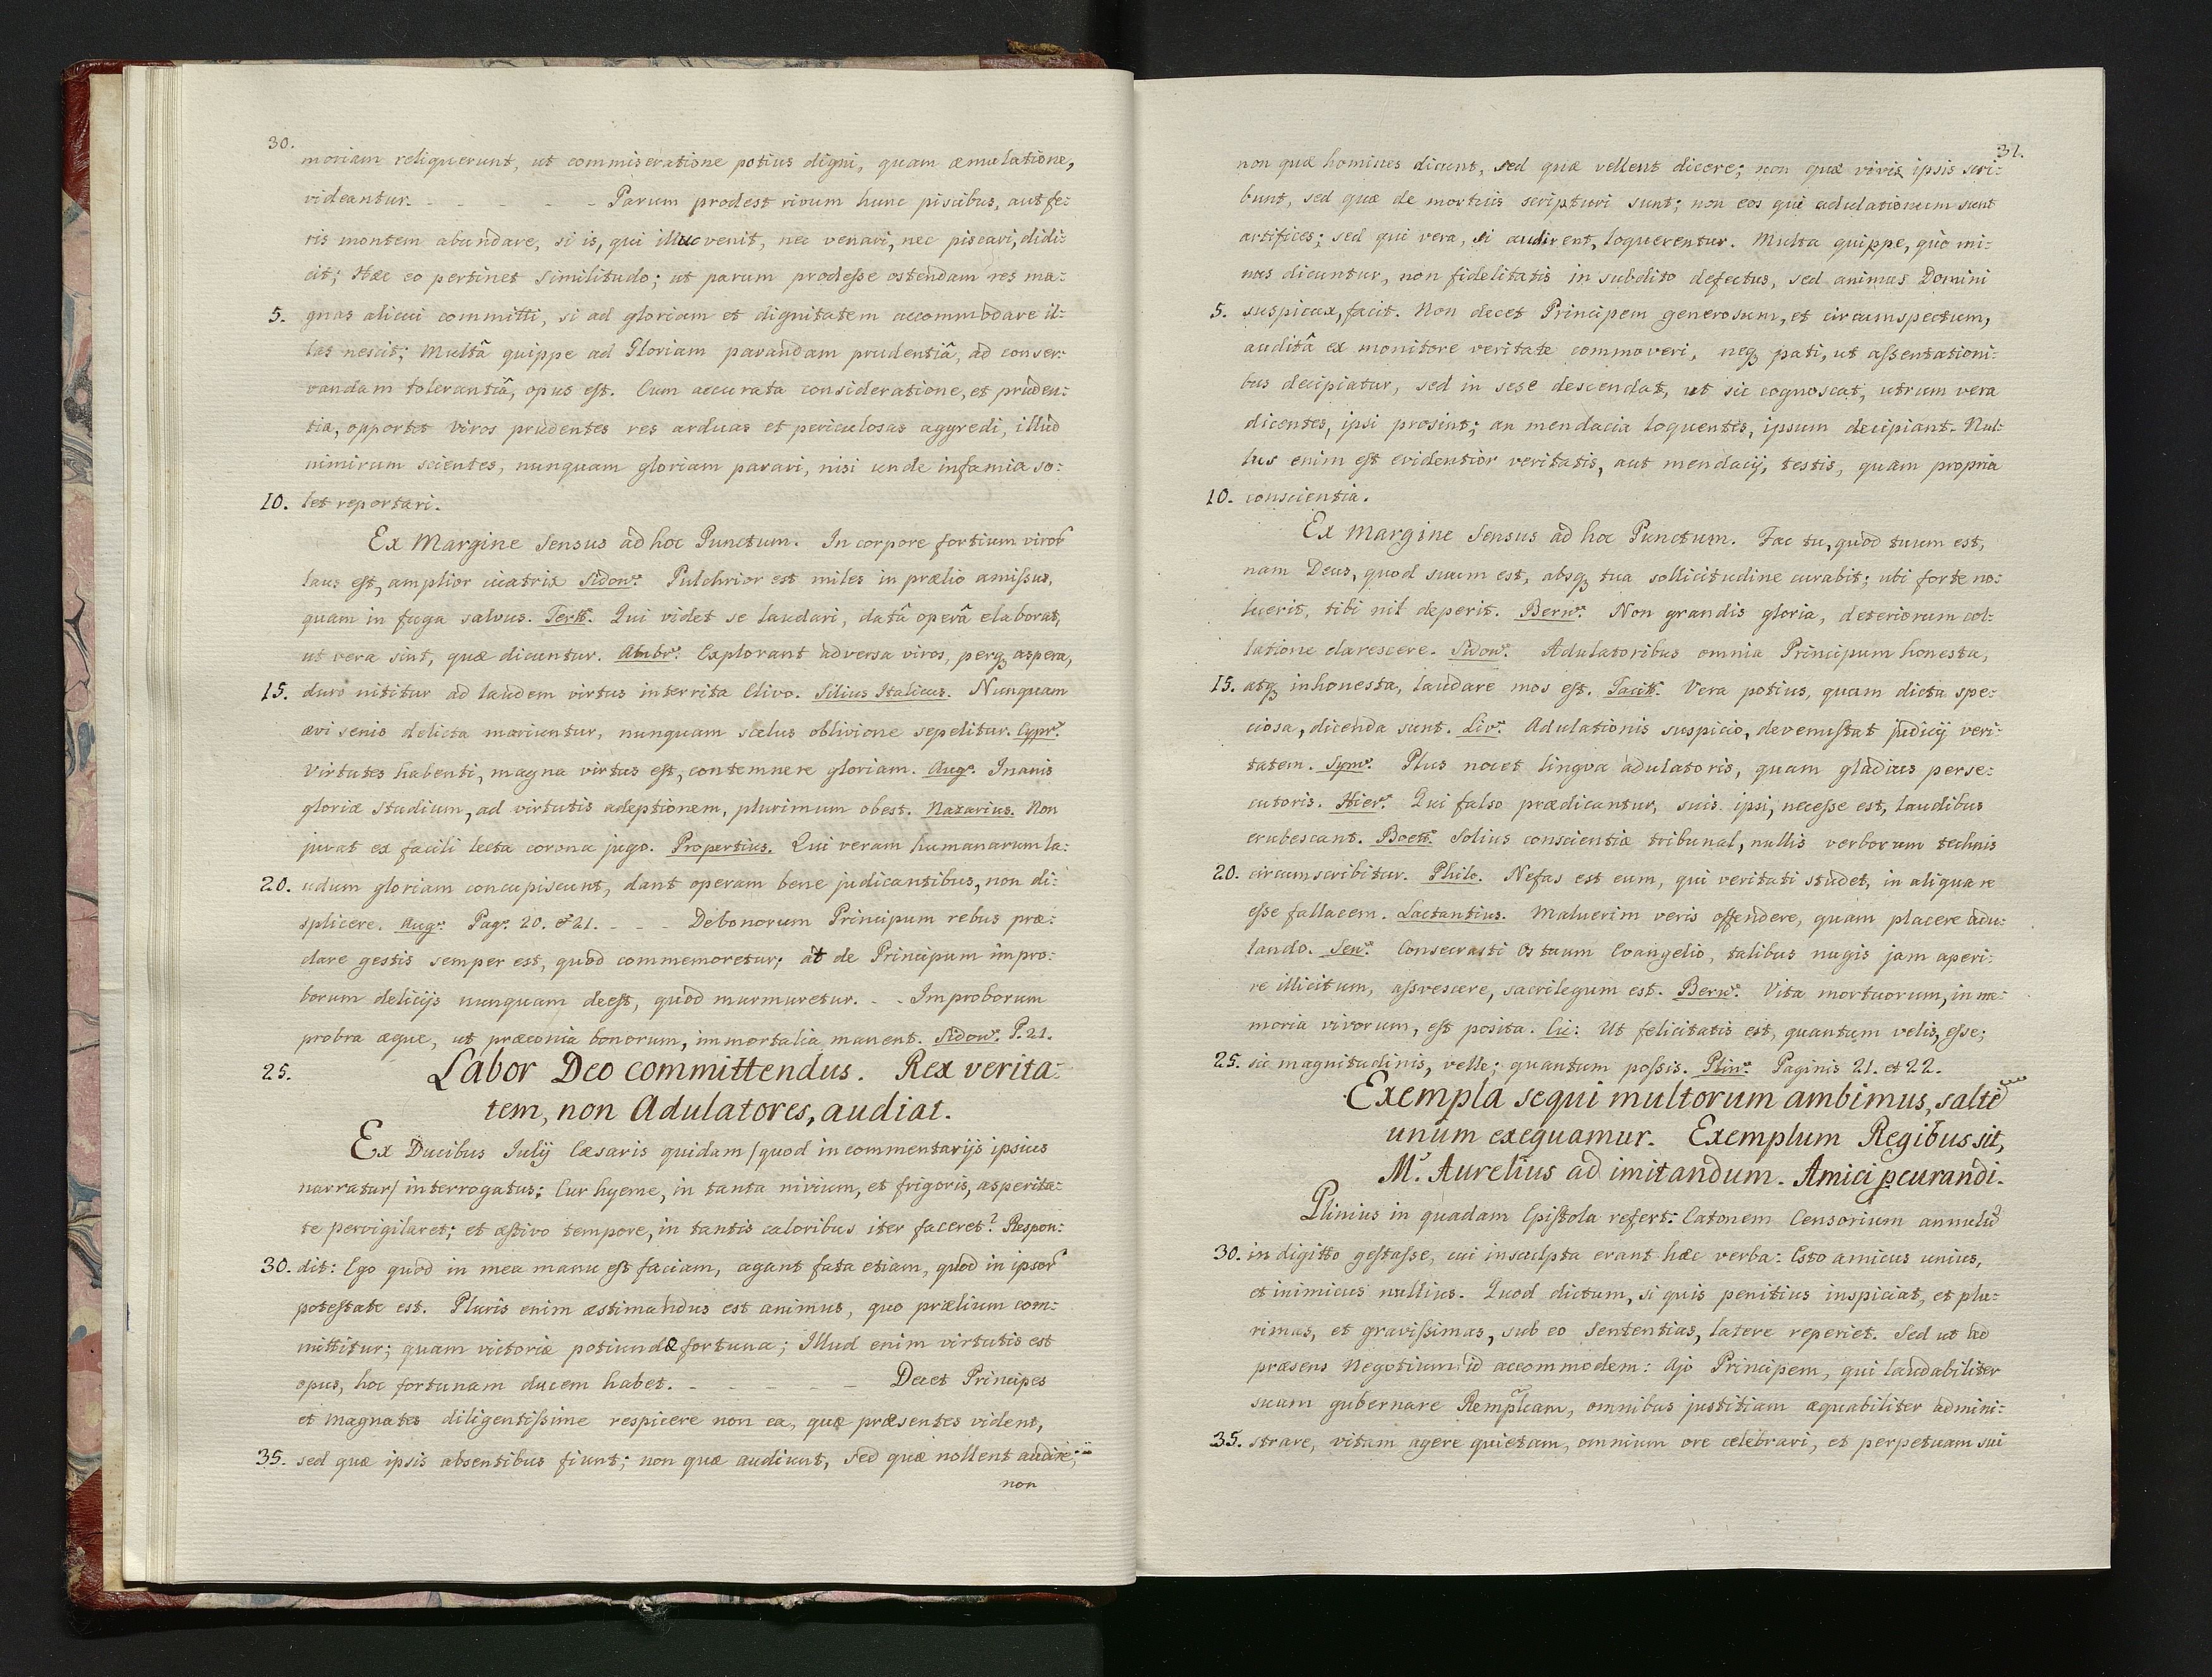 30.
moriam reliquerunt, ut commiseratione potius digni, quam æmulatione,
videantur. - - - - - Parum prodest rivum hunc piscibus, aut fe:
ris montem abundare, si is, qui illuc venit, nec venari, nec piscari, didi:
cit; Hæc eo pertinet similitudo; ut parum prodesse ostendam res ma:
5. gnas alicui committi, si ad gloriam et dignitatem accommodare il:
las nescit; Multâ quippe ad Gloriam parandam prudentiâ, ad conser:
vandam tolerantiâ, opus est. Cum accurata consideratione, et pruden:
tia, opportet viros prudentes res arduas et periculosas aggredi, illud
nimirum scientes, nunquam gloriam parari, nisi unde infamia so:
10. let reportari.
Ex Margine Sensus ad hoc Punctum. In corpore fortium viror
laus est, amplior cicatrix Sidon: Pulchrior est miles in prælio amissus,
quam in fuga salvus. Tert: Qui videt se laudari, datâ operâ elaborat,
ut vera sint, quæ dicuntur. Ambr: Explorant adversa viros, perq aspera,
15. duro nititur ad laudem virtus interrita Clivo. Silius Italicus. Nunquam
ævi senio delicta moriuntur, nunquam scelus oblivione sepelitur. Cypr:
Virtutes habenti, magna virtus est, contemnere gloriam. Aug: Inanis
gloriæ studium, ad virtutis adeptionem, plurimum obest. Nazarius. Non
juvat ex facili lecta corona jugo. Propertius. Qui veram humanarum la:
20. udum gloriam concupiscunt, dant operam bene judicantibus, non di:
splicere. Aug: Pag: 20. et 21. - - - De bonorum Principum rebus præ:
clare gestis semper est, quod commemoretur; at de Principum impro:
borum delicijs nunquam deest, quod murmuretur. - - Improborum
probra æque, ut præconia bonorum, immortalia manent. Sidon: P. 21.
25. Labor Deo committendus. Rex verita:
tem, non Adulatores, audiat.
Ex Ducibus Julij Cæsaris quidam /quod in commentarijs ipsius
narratur/ interrogatus: Cur hyeme, in tanta nivium, et frigoris, asperita:
te pervigilaret; et æstivo tempore, in tantis caloribus iter faceret? Respon:
30. dit: Ego quod in mea manu est faciam, agant fata etiam, quod in ipsor
potestate est. Pluris enim æstimandus est animus, quo prælium com:
mittitur; quam victoriæ potiundæ fortuna; Illud enim virtutis est
opus, hoc fortunam ducem habet. - - - - - - Decet Principes
et Magnates diligentissime respicere non ea, quæ præsentes vident,
35. sed quæ ipsis absentibus fiunt; non quæ audiunt, sed quæ nollent audire;
non
31.
non quæ homines dicunt, sed quæ vellent dicere; non quæ vivis ipsis scri:
bunt, sed quæ de mortuis scripturi sunt; non eos qui adulationum sunt
artifices; sed qui vera, si audirent, loquerentur. Multa quippe, quo mi:
nus dicuntur, non fidelitatis in subdito defectus, sed animus Domini
5. suspicax, facit. Non decet Principem generosum, et circumspectum,
auditâ ex monitore veritate commoveri, neq pati, ut assentationi:
bus decipiatur, sed in sese descendat, ut sic cognoscat, utrum vera
dicentes, ipsi prosint; an mendacia loquentes, ipsum decipiant. Nul:
lus enim est evidentior veritatis, aut mendacij, testis, quam propria
10. conscientia.
Ex Margine Sensus ad hoc Punctum. Fac tu, quod tuum est,
nam Deus, quod suum est, absq tua sollicitudine curabit; ubi forte no:
luerit, tibi nil deperit. Bern: Non grandis gloria, deteriorum col:
latione clarescere. Sidon: Adulatoribus omnia Principum honesta,
15. atq inhonesta, laudare mos est. Tacit: Vera potius, quam dictu spe:
ciosa, dicenda sunt. Liv: Adulationis suspicio, devenustat judicij veri:
tatem. Sym: Plus nocet lingva adulatoris, quam gladius perse:
cutoris. Hier: Qui falso prædicantur, suis ipsi, necesse est, laudibus
erubescant. Boet: Solius conscientiæ tribunal, nullis verborum technis
20. circumscribitur. Philo. Nefas est eum, qui veritati studet, in aliqua re
esse fallacem. Lactantius. Maluerim veris offendere, quam placere adu:
lando. Sen: Consecrasti os tuum Evangelio, talibus nugis jam aperi:
re illicitum, assvescere, sacrilegum est. Bern: Vita mortuorum, in me:
moria vivorum, est posita. Cic: Ut felicitatis est, quantum velis, esse;
25. sic magnitudinis, velle; quantum possis. Plin: Paginis 21. et 22.
Exempla sequi multorum ambimus, salte
unum exequamur. Exemplum Regibus sit,
M. Aurelius ad imitandum. Amici pcurandi.
Plinius in quadam Epistola refert: Catonem Censorium annulu
30. in digitto gestasse, cui insculpta erant hæc verba: Esto amicus unius,
et inimicus nullius. Quod dictum, si quis penitius inspiciat, et plu:
rimas, et gravissimas, sub eo sententias, latere reperiet. Sed ut ad
præsens Negotium id accommodem: Ajo Principem, qui laudabiliter
suam gubernare Remplcam, omnibus justitiam æquabiliter admini:
35. strare, vitam agere quietam, omnium ore celebrari, et perpetuam sui